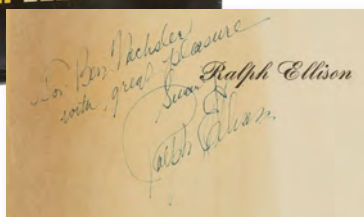 For Ben Nachsler
with great pleasure
Ralph Ellison
Ralph Ellison